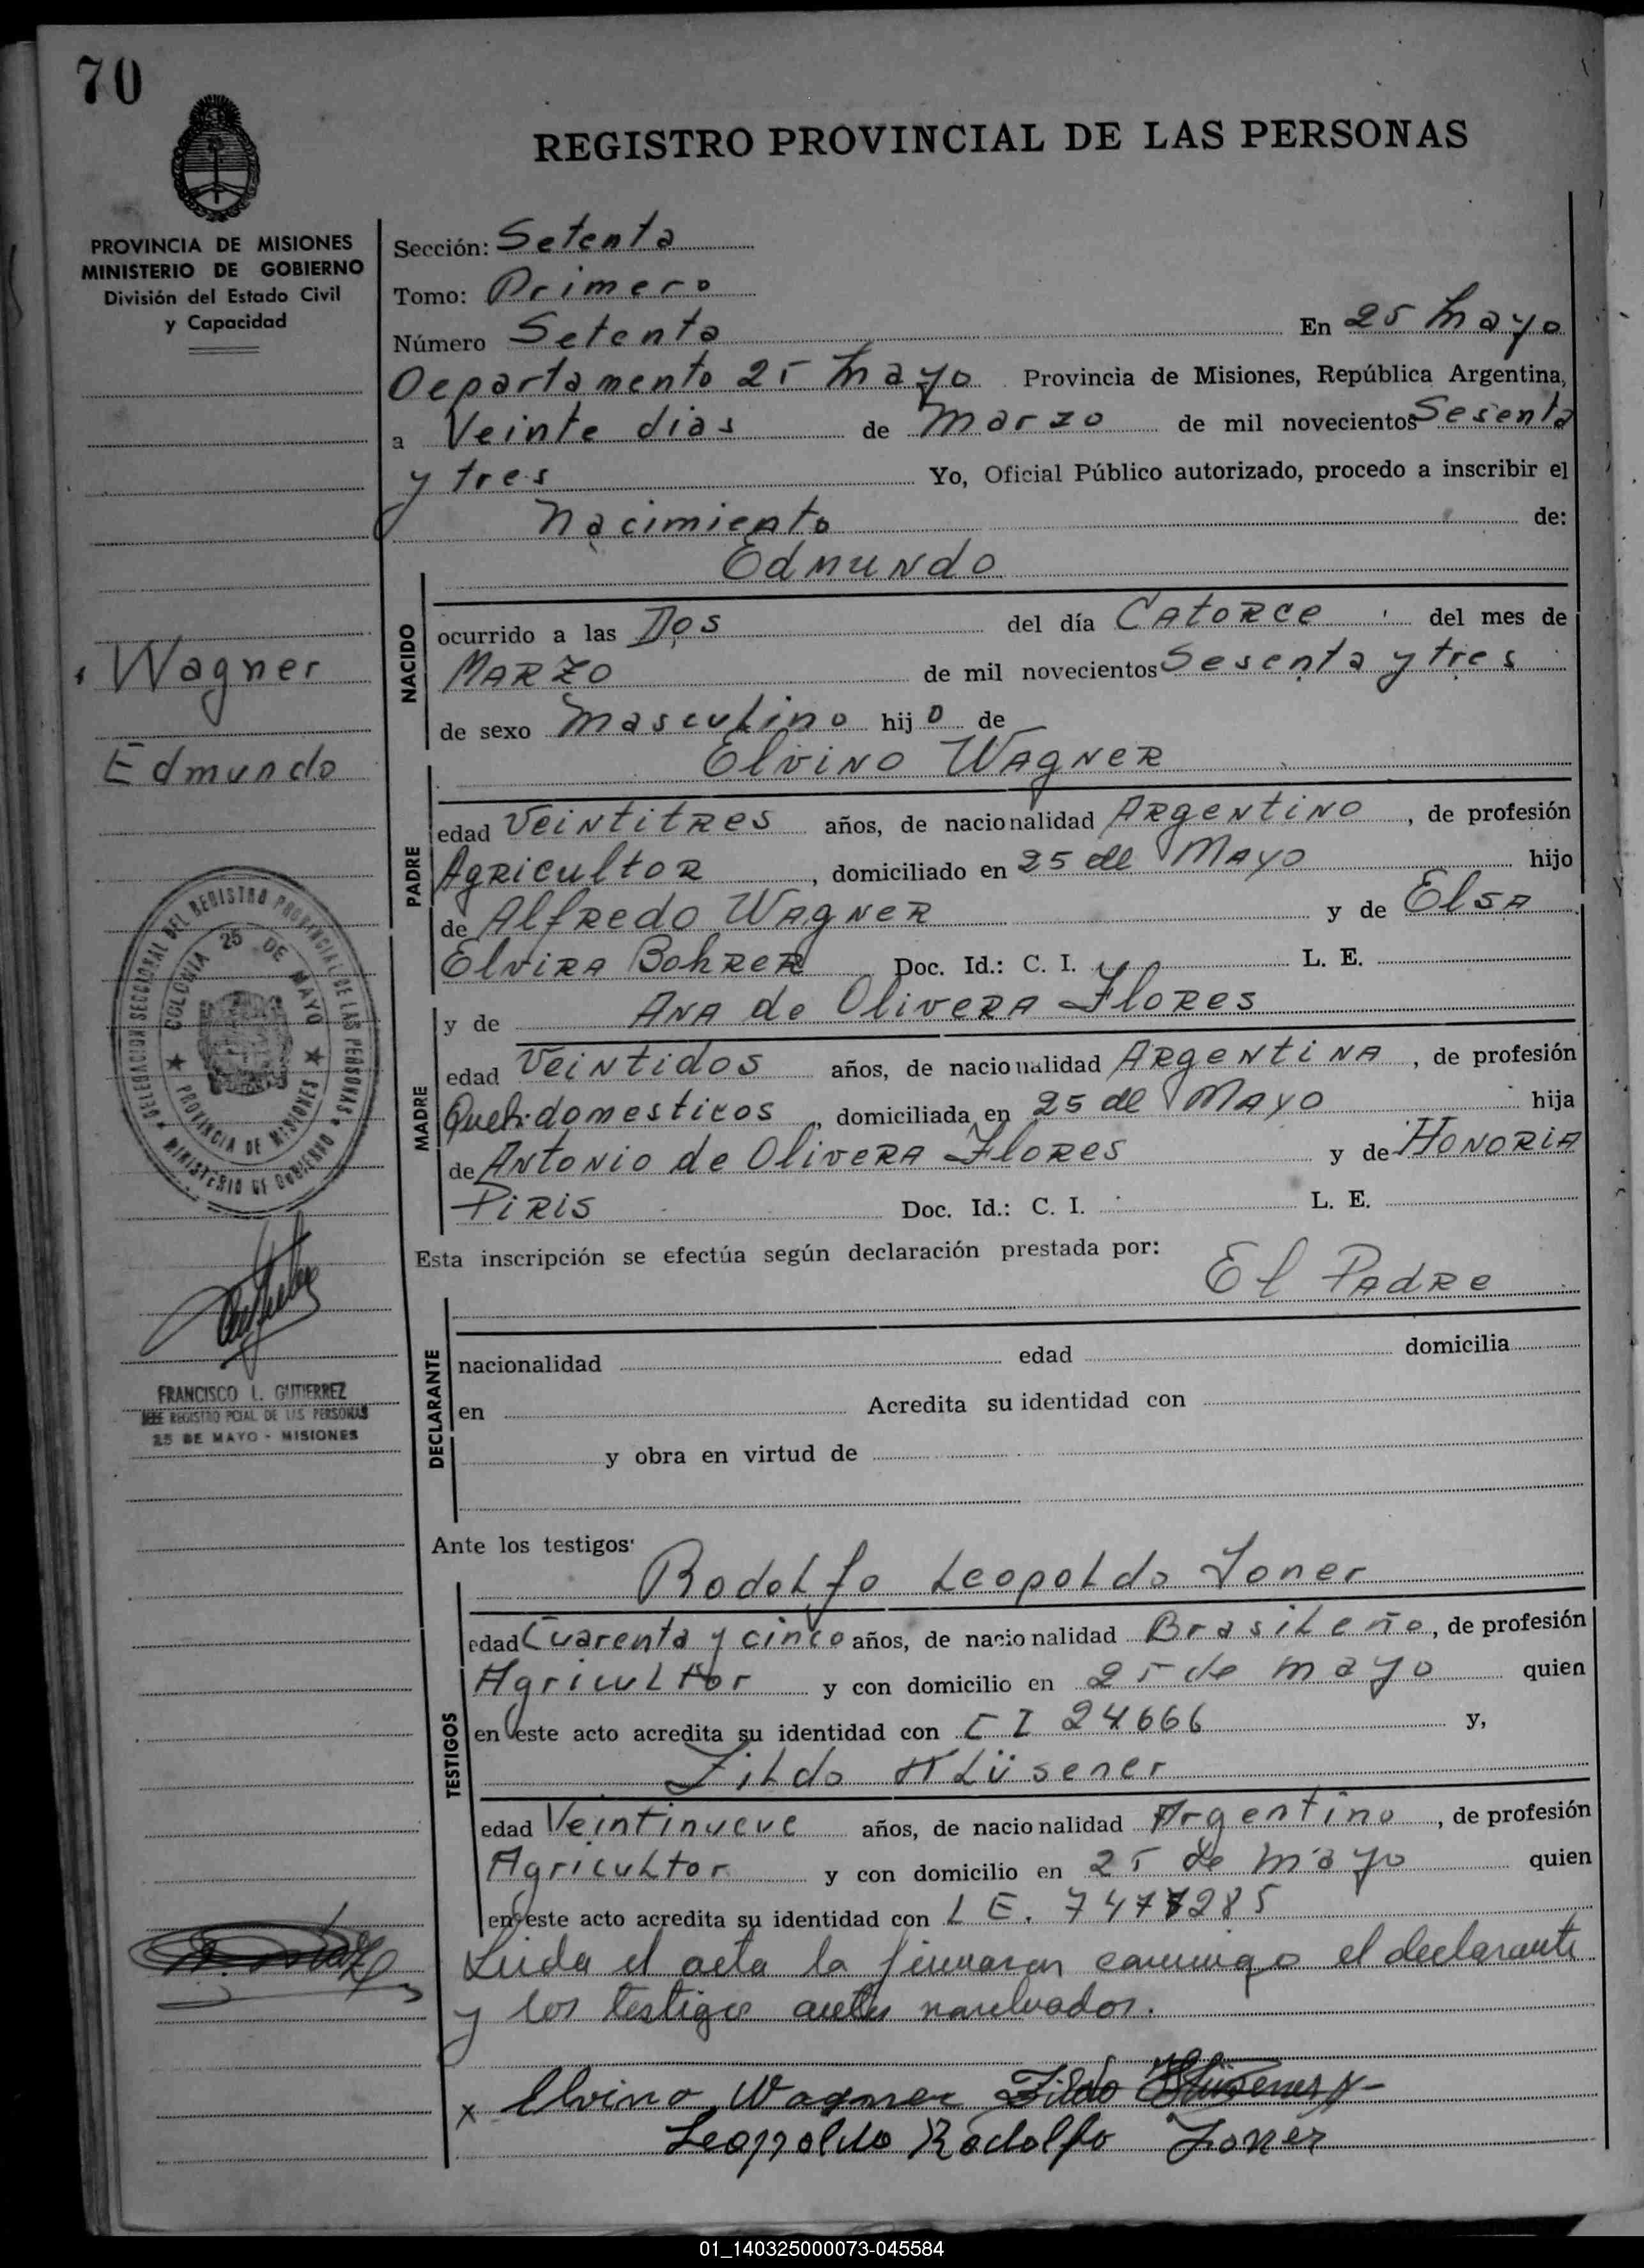 70
REGISTRO PROVINCIAL DE LAS PERSONAS
PROVINCIA DE MISIONES
MINISTERIO DE GOBIERNO
División del Estado Civil
y Capacidad
Sección: Setenta
Tomo: Primero
Número Setenta En 25 Mayo
Departamento 25 Mayo Provincia de Misiones, República Argentina,
a Veinte dias de Marzo de mil novecientos Sesenta
y tres Yo, Oficial Público autorizado, procedo a inscribir el
Nacimiento de:
Edmundo
NACIDO
ocurrido a las Dos del día Catorce del mes de
Marzo de mil novecientos Sesenta y tres
de sexo Masculino hijo de
Wagner
Edmundo
Elvino Wagner
PADRE
edad Veintitres años, de nacionalidad Argentino, de profesión
Agricultor, domiciliado en 25 de Mayo hijo
de Alfredo Wagner y de Elsa
Elvira Bohrer Doc. Id.: C. I. L. E.
y de Ana de Olivera Flores
MADRE
edad Veintidos años, de nacionalidad Argentina, de profesión
Queh. domesticos, domiciliada en 25 de Mayo hija
de Antonio de Olivera Flores y de Honoria
Piris Doc. Id.: C. I. L. E.
DELEGACION SECCIONAL DEL REGISTRO PROVINCIAL DE LAS PERSONAS
MINISTERIO DE GOBIERNO
COLONIA 25 DE MAYO
PROVINCIA DE MISIONES
Esta inscripción se efectúa según declaración prestada por:
El Padre
DECLARANTE
nacionalidad edad domicilia
en Acredita su identidad con
y obra en virtud de
FRANCISCO L. GUTIERREZ
JEFE REGISTRO PCIAL DE LAS PERSONAS
25 DE MAYO - MISIONES
Ante los testigos:
Rodolfo Leopoldo Joner
TESTIGOS
edad Cuarenta y cinco años, de nacionalidad Brasileño, de profesión
Agricultor y con domicilio en 25 de mayo quien
en este acto acredita su identidad con C I 24666 y,
Zildo Klüsener
edad Veintinueve años, de nacionalidad Argentino, de profesión
Agricultor y con domicilio en 25 de mayo quien
en este acto acredita su identidad con L E. 7477285
Leida el acta la firmaron conmigo el declarante
y los testigos antes nombrados.
x Elvino Wagner Zildo Klüsener
Leopoldo Rodolfo Joner
01_140325000073-045584